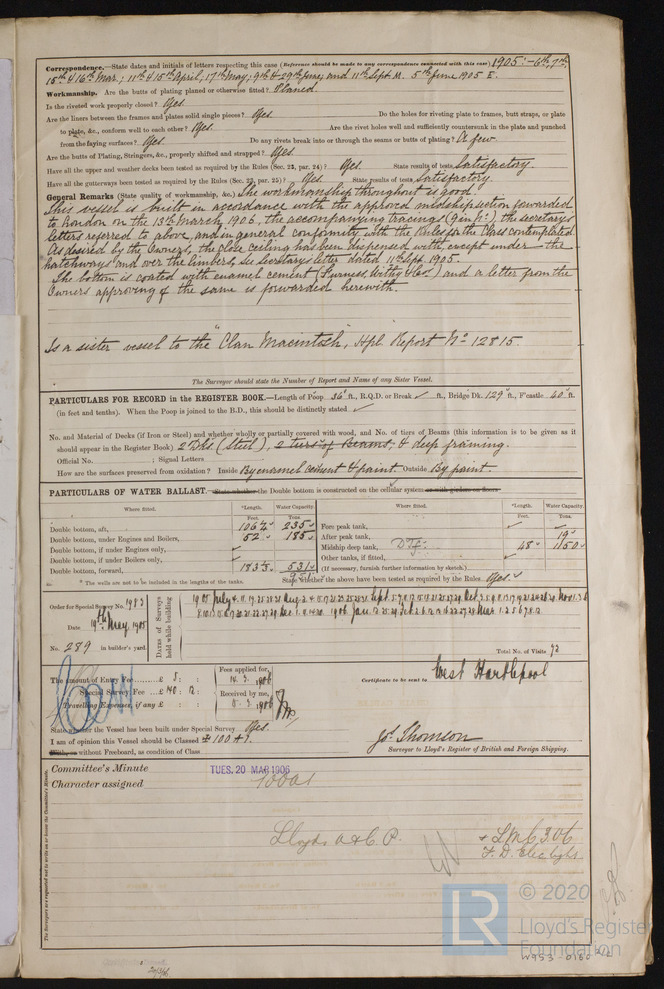 Correspondence.—State dates and initials of letters respecting this case (Reference should be made to any correspondence connected with this case) 1905:- 6th, 7th,
15th & 16th Mar.; 11th & 15th April; 17th May; 9th & 29th June; and 11th Sept. M. 5th June 1905 E.
Workmanship. Are the butts of plating planed or otherwise fitted? Planed.
Is the riveted work properly closed? Yes.
Are the liners between the frames and plates solid single pieces? Yes. Do the holes for riveting plate to frames, butt straps, or plate
to plate, &c., conform well to each other? Yes. Are the rivet holes well and sufficiently countersunk in the plate and punched
from the faying surfaces? Yes. Do any rivets break into or through the seams or butts of plating? A few.
Are the butts of Plating, Stringers, &c., properly shifted and strapped? Yes.
Have all the upper and weather decks been tested as required by the Rules (Sec. 23, par. 24)? Yes. State results of tests Satisfactory
Have all the gutterways been tested as required by the Rules (Sec. 23, par. 25)? Yes. State results of tests Satisfactory.
General Remarks (State quality of workmanship, &c.) The workmanship throughout is good.
This vessel is built in accordance with the approved midship section forwarded
to London on the 13th March 1906, the accompanying tracings (9 in No.), the secretary's
letters referred to above, and in general conformity with the Rules for the Class contemplated.
As desired by the Owners, the close ceiling has been dispensed with, except under the
hatchways and over the limbers, see Secretary's letter dated 11th Sept. 1905.
The bottom is coated with enamel cement (Furness, Withy & Co's) and a letter from the
Owners approving of the same is forwarded herewith.
Is a sister vessel to the "Clan Macintosh, Hpl. Report No. 12815.
The Surveyor should state the Number of Report and Name of any Sister Vessel.
PARTICULARS FOR RECORD in the REGISTER BOOK.—Length of Poop 36 ft., R.Q.D. or Break ✓ ft., Bridge Dk. 129 ft., F'castle 40 ft.
(in feet and tenths). When the Poop is joined to the B.D., this should be distinctly stated ✓
No. and Material of Decks (if Iron or Steel) and whether wholly or partially covered with wood, and No. of tiers of Beams (this information is to be given as it
should appear in the Register Book) 2 Dks (Steel), 2 tiers of Beams, & deep framing.
Official No. ; Signal Letters
How are the surfaces preserved from oxidation? Inside By enamel cement & paint. Outside By paint.
PARTICULARS OF WATER BALLAST.—State whether the Double bottom is constructed on the cellular system or with girders on floors.
Where fitted. *Length. Water Capacity. Where fitted. *Length. Water Capacity.
Feet. Tons. Feet. Tons.
Double bottom, aft, 235 Fore peak tank,
Double bottom, under Engines and Boilers, 52 185 After peak tank, 19
Double bottom, if under Engines only, Midship deep tank, 48 1150
Double bottom, if under Boilers only, Other tanks, if fitted,
Double bottom, forward, 531 (If necessary, furnish further information by sketch.)
* The wells are not to be included in the lengths of the tanks. State whether the above have been tested as required by the Rules Yes.
Order for Special Survey No. 1983
Date 19th May 1905
No. 289 in builder's yard.
Dates of Surveys held while building
Total No. of Visits 72
The amount of Entry Fee £ 5 : : Fees applied for,
Special Survey Fee £ 40 : 12 : 14. 3. 1906
Travelling Expenses, if any £ : : Received by me,
1906
Certificate to be sent to West Hartlepool
State whether the Vessel has been built under Special Survey Yes.
I am of opinion this Vessel should be Classed ✠ 100 A 1.
With, or without Freeboard, as condition of Class
Jos. Thomson
Surveyor to Lloyd's Register of British and Foreign Shipping.
Committee's Minute TUES. 20 MAR 1906
Character assigned 100A1
Lloyds A & C. P. + LMC 3.06
F. D. Elec light
The Surveyors are requested not to write on or below the Committee's Minute.
LR
© 2020
Lloyd's Register
Foundation